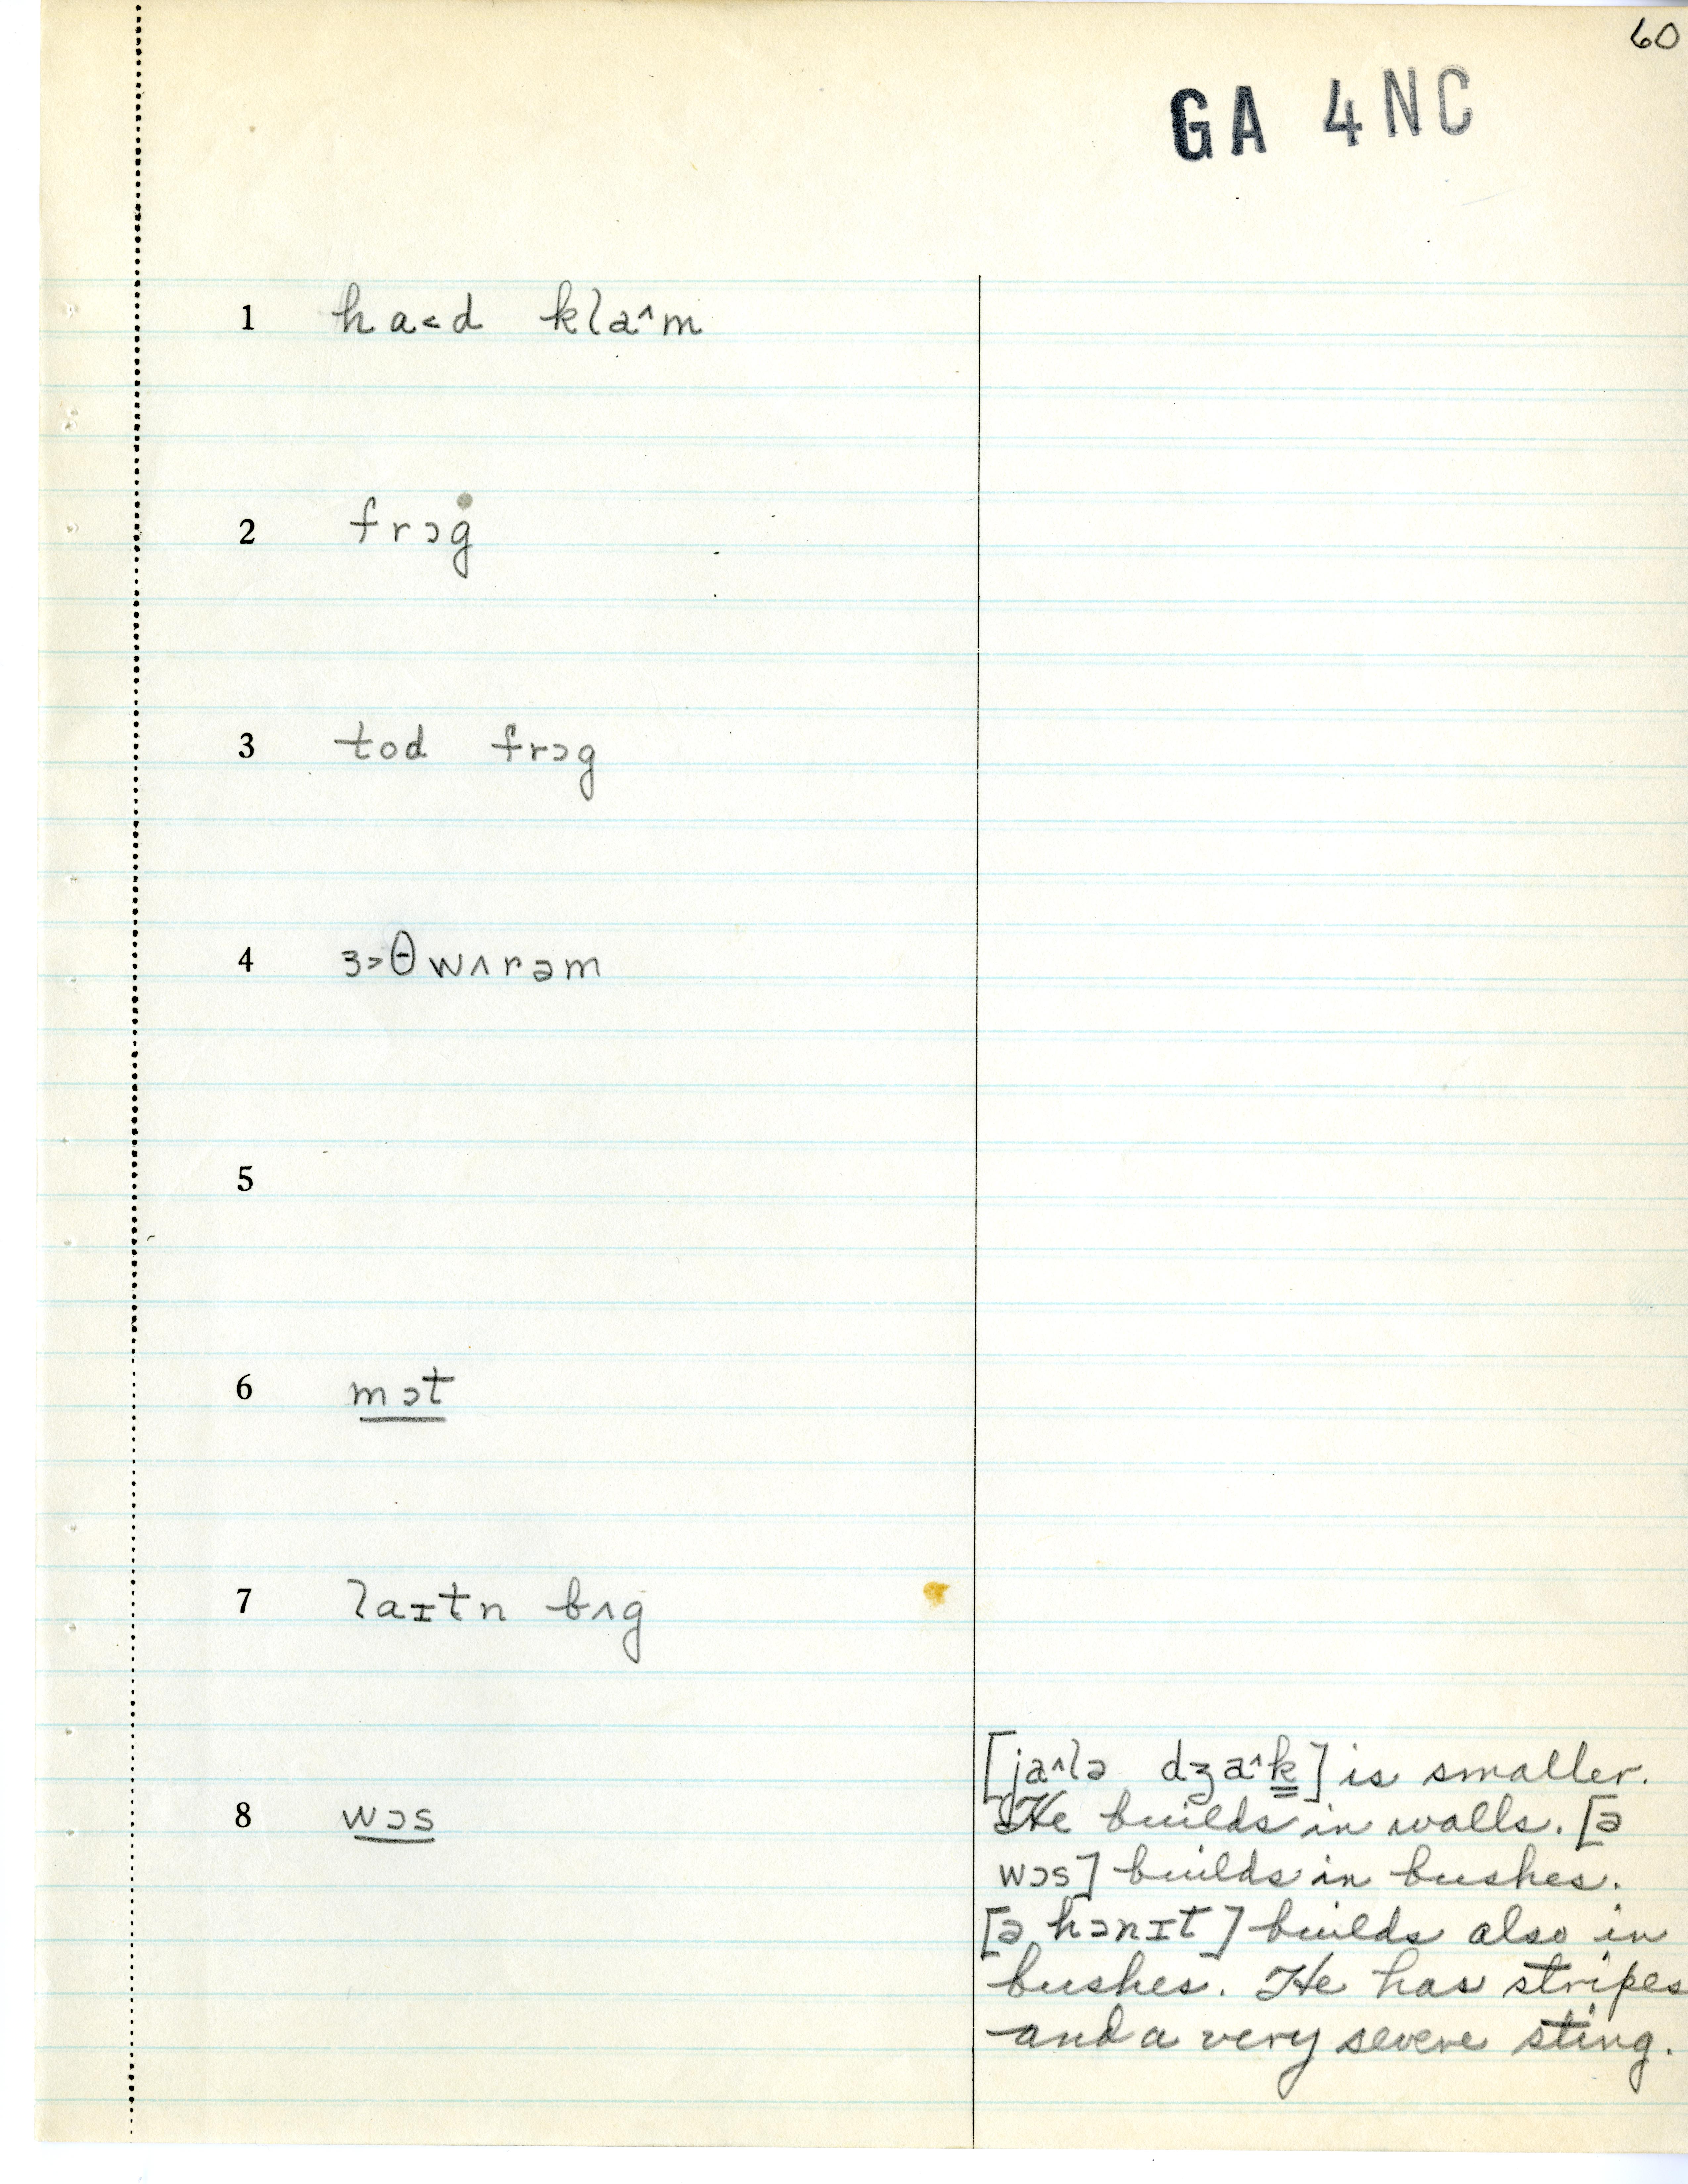 60
GA 4NC
1 ha˂d kla^m
2 frɔg
3 tod frɔg
4 ɜ˃θwʌrəm
5
6 mɔt
7 laɪtn bʌg
8 wɔs
[ja^lə dʒa^k] is smaller.
He builds in walls. [ə
wɔs] builds in bushes.
[ə hɔnɪt] builds also in
bushes. He has stripes
and a very severe sting.